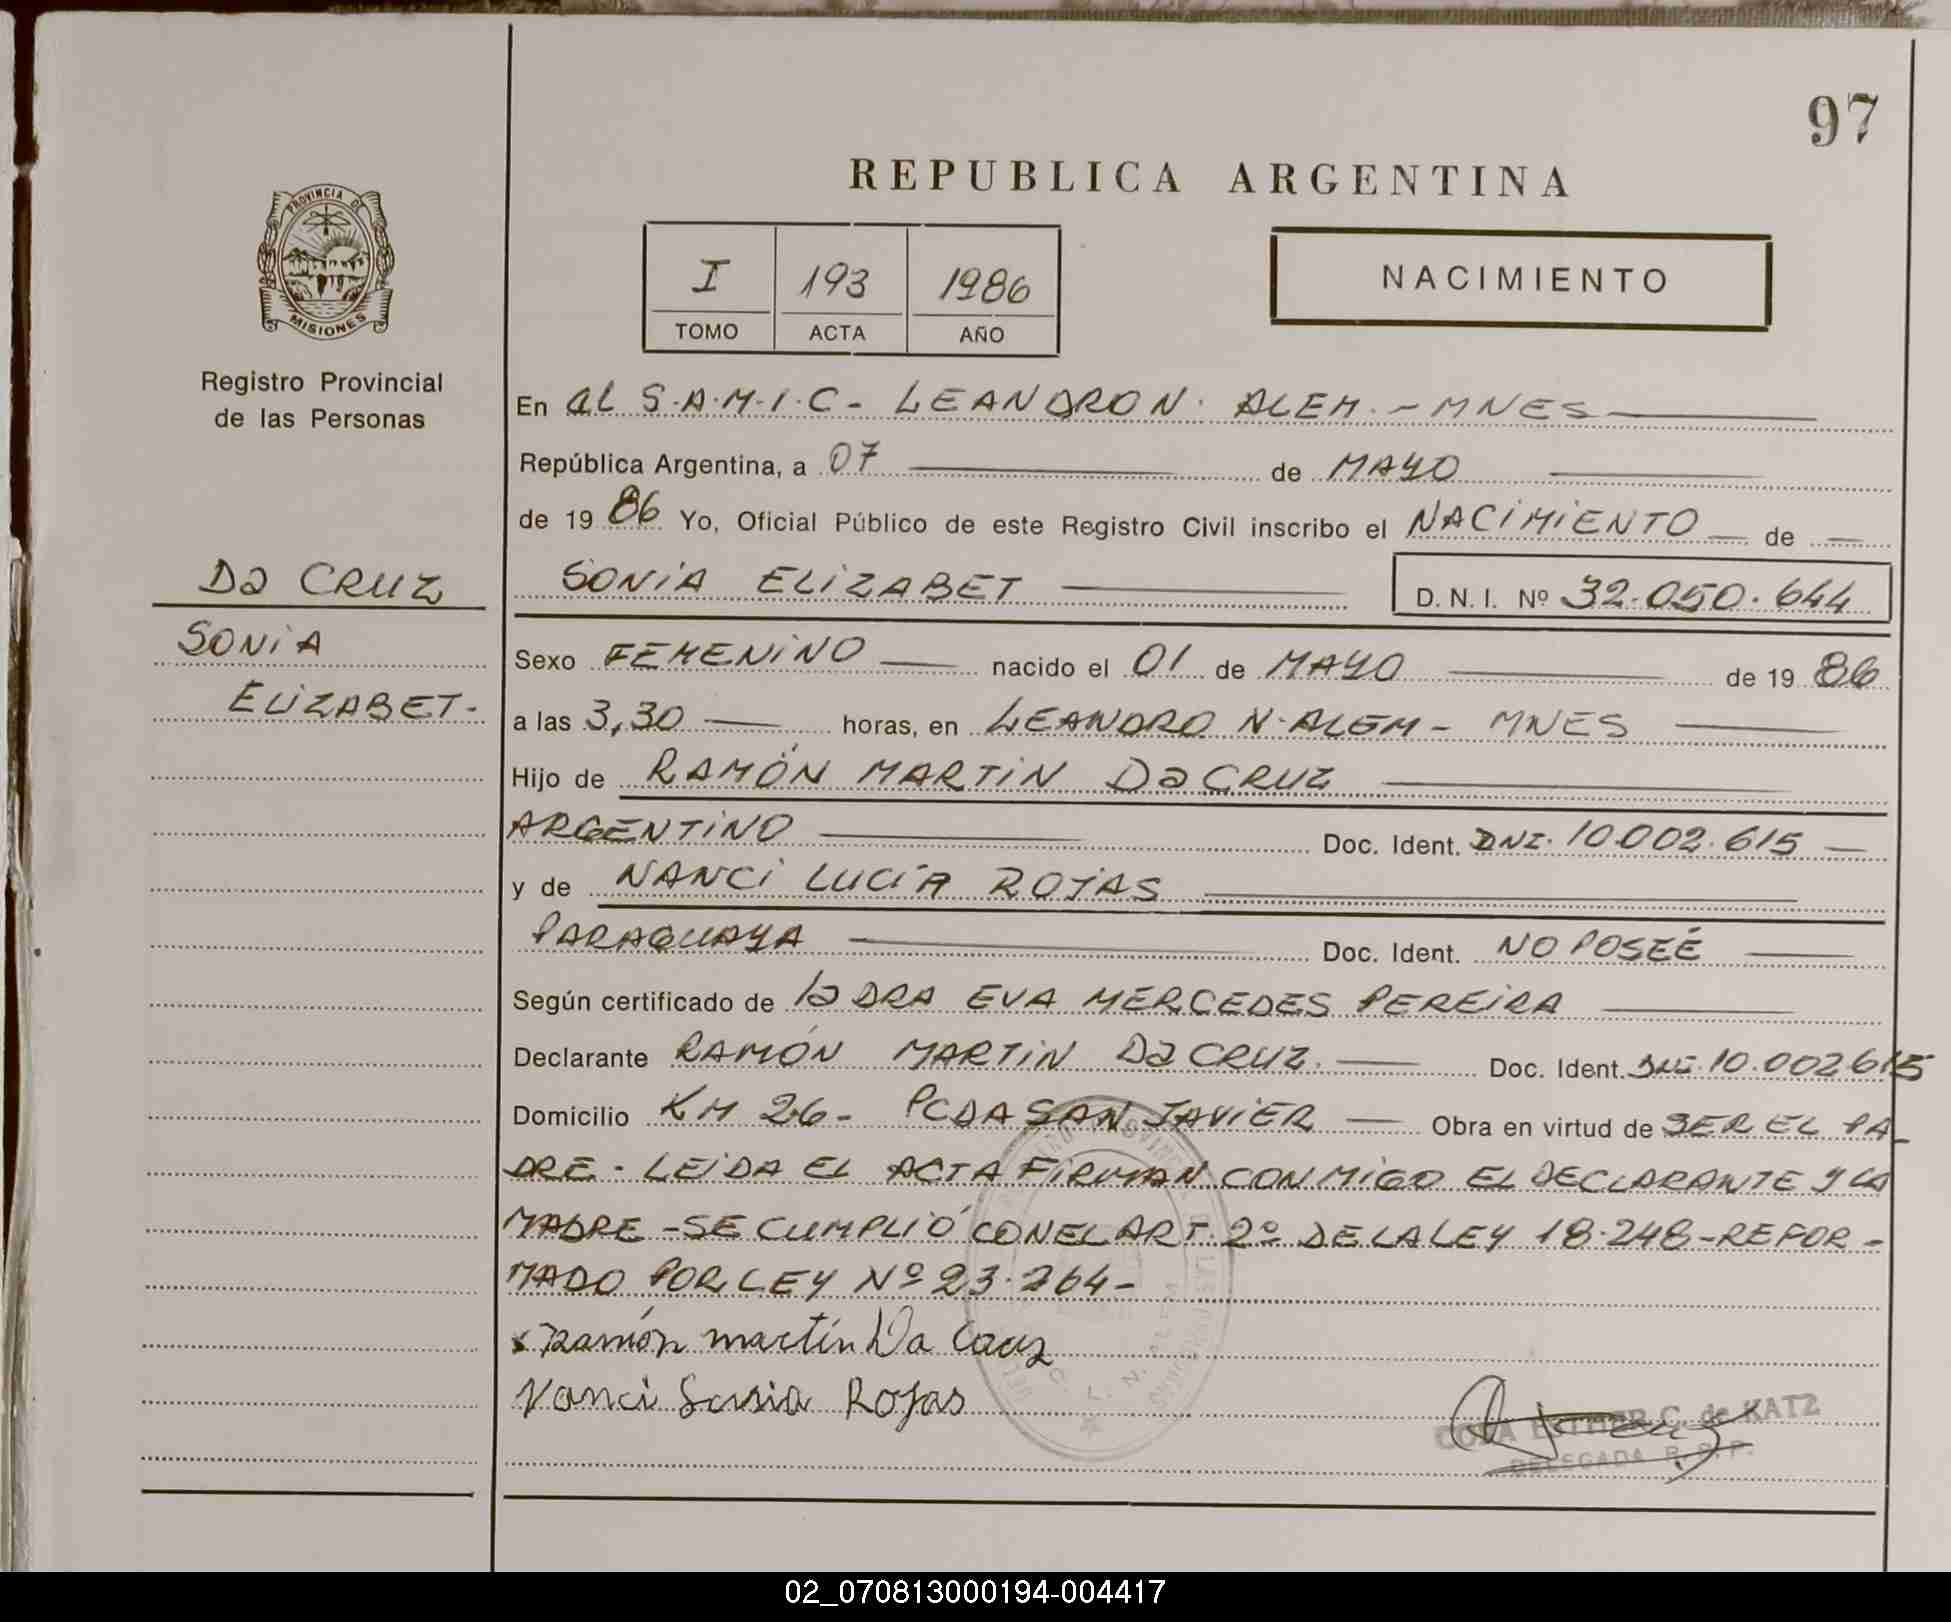 97
REPUBLICA ARGENTINA
PROVINCIA DE
MISIONES
Registro Provincial
de las Personas
I 193 1986
TOMO ACTA AÑO
NACIMIENTO
En al S.A.M.I.C- LEANDRO N. ALEM.-MNES
República Argentina, a 07 de MAYO
de 1986 Yo, Oficial Público de este Registro Civil inscribo el NACIMIENTO de
Da CRUZ
SONIA
ELIZABET.
SONIA ELIZABET D.N.I. Nº 32.050.644
Sexo FEMENINO nacido el 01 de MAYO de 1986
a las 3,30 horas, en LEANDRO N. ALEM- MNES
Hijo de RAMÓN MARTIN Da CRUZ
ARGENTINO Doc. Ident. DNI. 10.002.615
y de NANCI LUCÍA ROJAS
PARAGUAYA Doc. Ident. NO POSEÉ
Según certificado de la DRA EVA MERCEDES PEREIRA
Declarante RAMÓN MARTIN Da CRUZ. Doc. Ident. DNI. 10.002615
Domicilio KM 26- PCDA SAN JAVIER Obra en virtud de SER EL PA-
DRE- LEIDA EL ACTA FIRMAN CONMIGO EL DECLARANTE Y LA
MADRE-SE CUMPLIÓ CON EL ART. 2º DE LA LEY 18.248-REFOR-
MADO POR LEY Nº 23.264-
x Ramón martín Da Cruz
Nanci Rojas
ESTHER C. de KATZ
DELEGADA R.P.P.
02_070813000194-004417